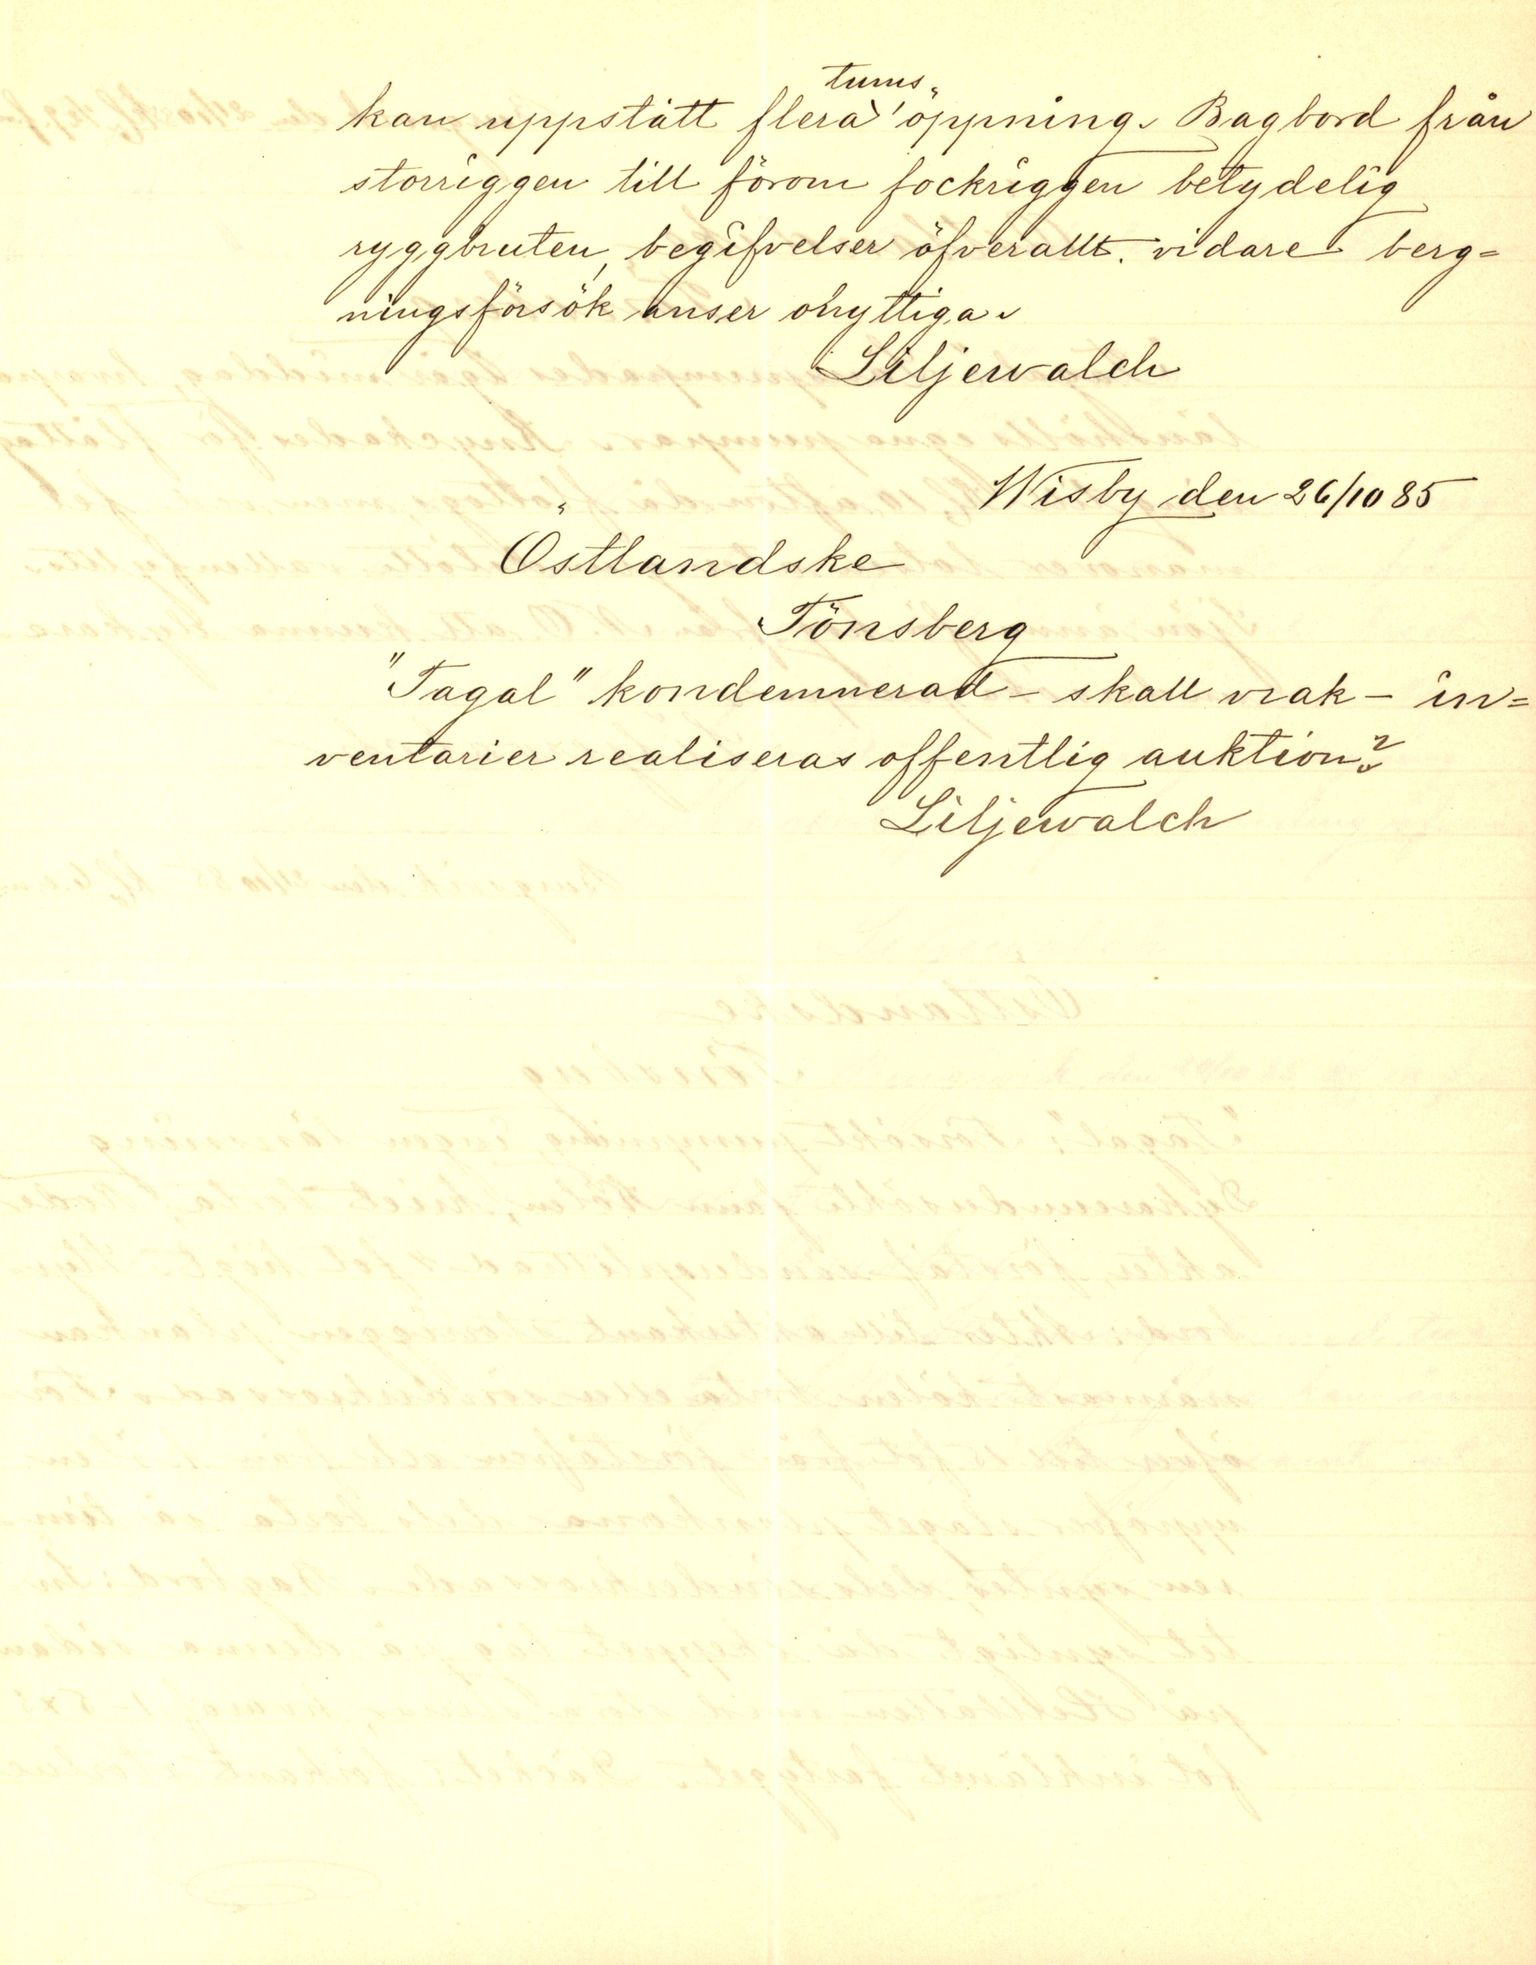 kan uppstått flera tums öppning. Bagbord från
storriggen till förom fockriggen betydelig
ryggbruten, begifvelser öfverallt. vidare berg=
ningsförsök anser onyttiga.
Liljewalch
Wisby den 26/10 85
Östlandske
Tönsberg
"Tagal" kondemnerad - skall vrak - in=
ventarier realiseras offentlig auktion?
Liljewalch